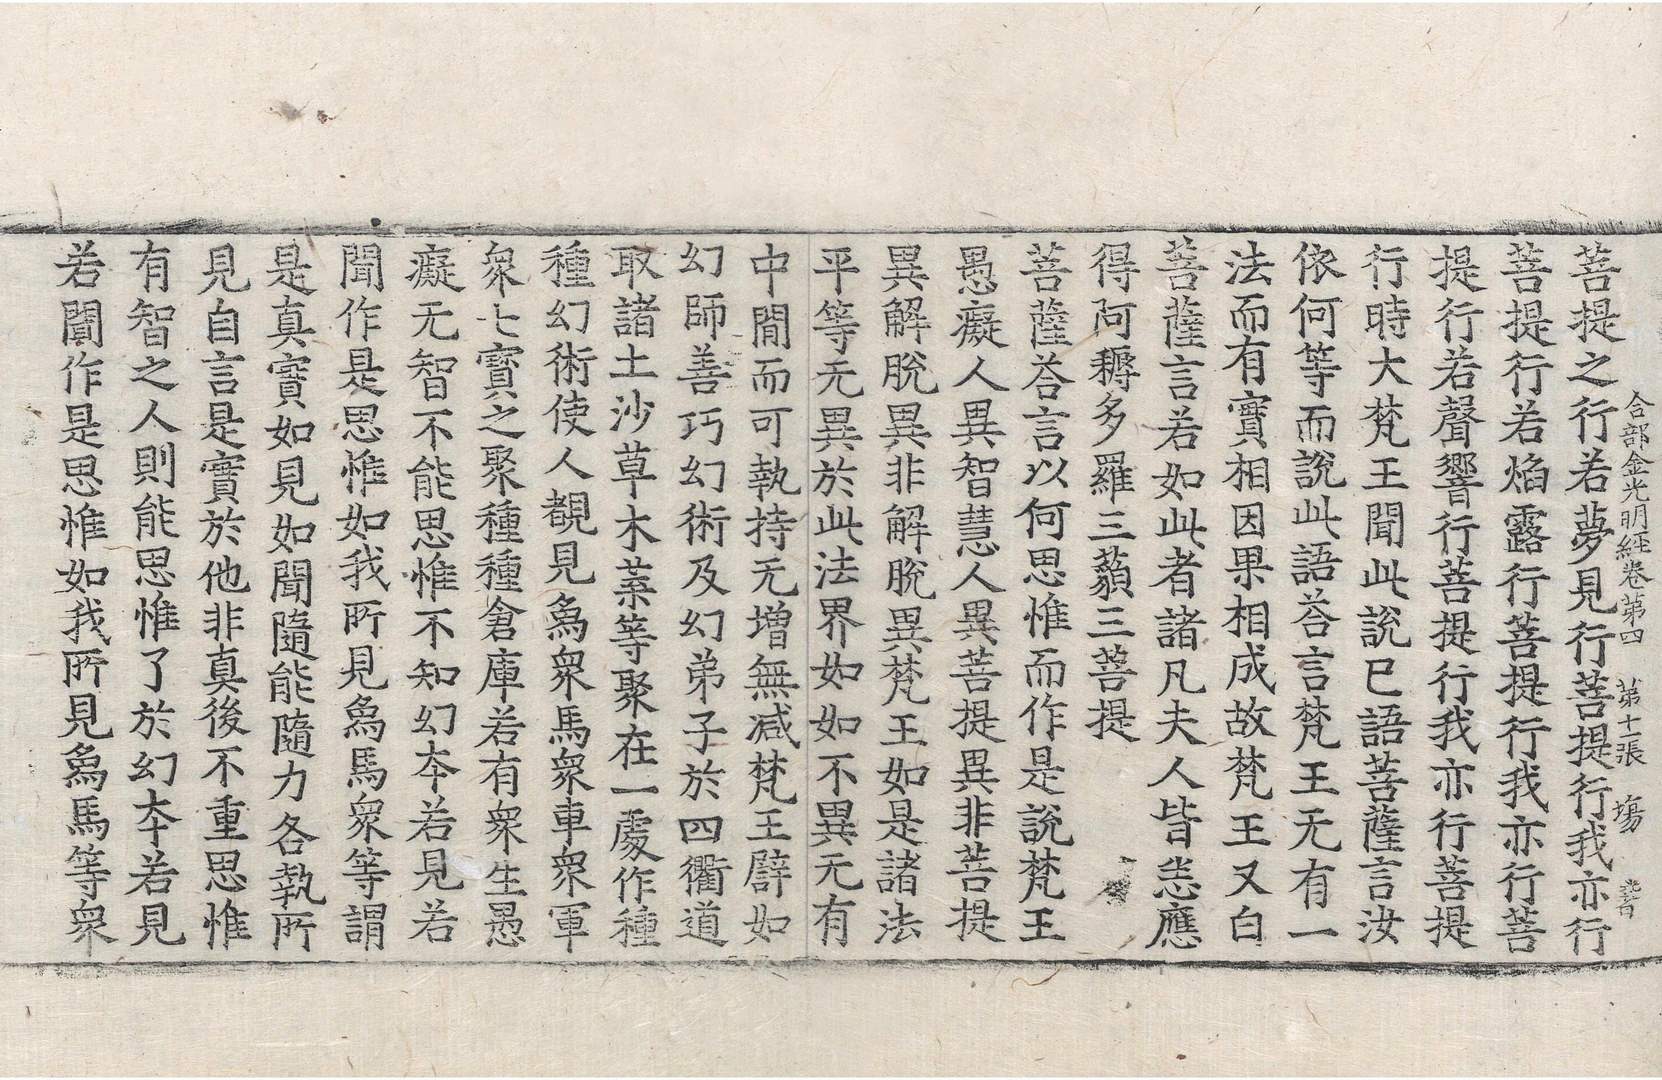 合部金光明經卷第四 第十一張 塲
菩提之行若夢見行菩提行我亦行
菩提行若焰露行菩提行我亦行菩
提行若聲響行菩提行我亦行菩提
行時大梵王聞此說已語菩薩言汝
依何等而說此語荅言梵王无有一
法而有實相因果相成故梵王又白
菩薩言若如此者諸凡夫人皆悉應
得阿耨多羅三藐三菩提
菩薩荅言以何思惟而作是說梵王
愚癡人異智慧人異菩提異非菩提
異解脫異非解脫異梵王如是諸法
平等无異於此法界如如不異无有
中間而可執持无增無减梵王譬如
幻師善巧幻術及幻弟子於四衢道
取諸土沙草木葉等聚在一處作種
種幻術使人覩見象衆馬衆車衆軍
衆七寶之聚種種倉庫若有衆生愚
癡无智不能思惟不知幻本若見若
聞作是思惟如我所見象馬衆等謂
是真實如見如聞隨能隨力各執所
見自言是實於他非真後不重思惟
有智之人則能思惟了於幻本若見
若聞作是思惟如我所見象馬等衆